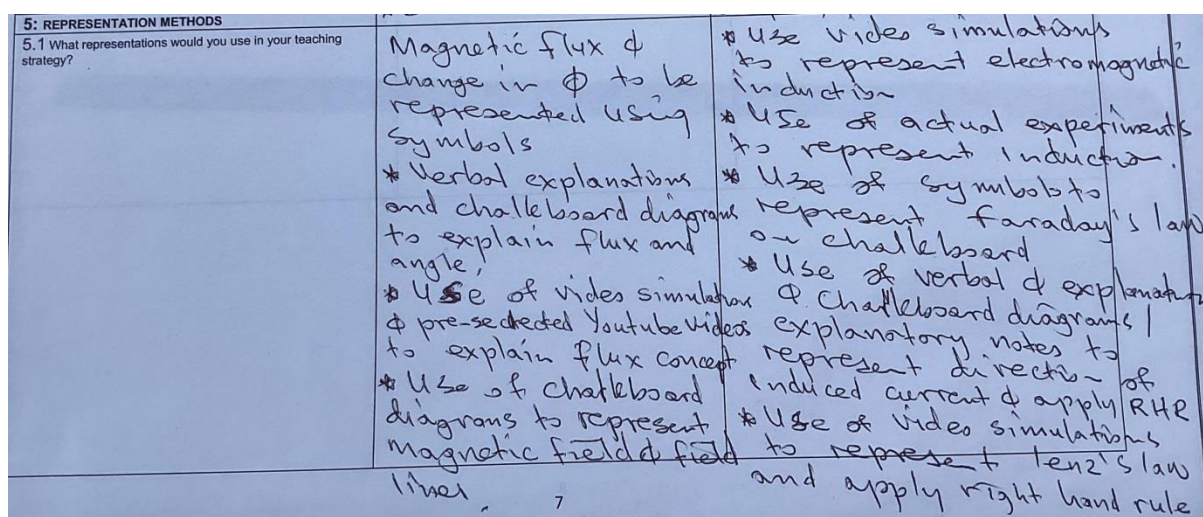 5: REPRESENTATION METHODS
5.1 What representations would you use in your teaching
strategy?
Magnetic flux &
change in ϕ to be
represented using
symbols
* Verbal explanations
and chalkboard diagrams
to explain flux and
angle,
* Use of video simulations
& pre-selected Youtube videos
to explain flux concept
* Use of chalkboard
diagrams to represent
magnetic field & field
lines
* Use video simulations
to represent electromagnetic
induction
* Use of actual experiments
to represent induction.
* Use of symbols to
represent Faraday's law
on chalkboard
* Use of verbal & explanatory
& chalkboard diagrams /
explanatory notes to
represent direction of
induced current & apply RHR
* Use of video simulations
to represent lenz's law
and apply right hand rule
7